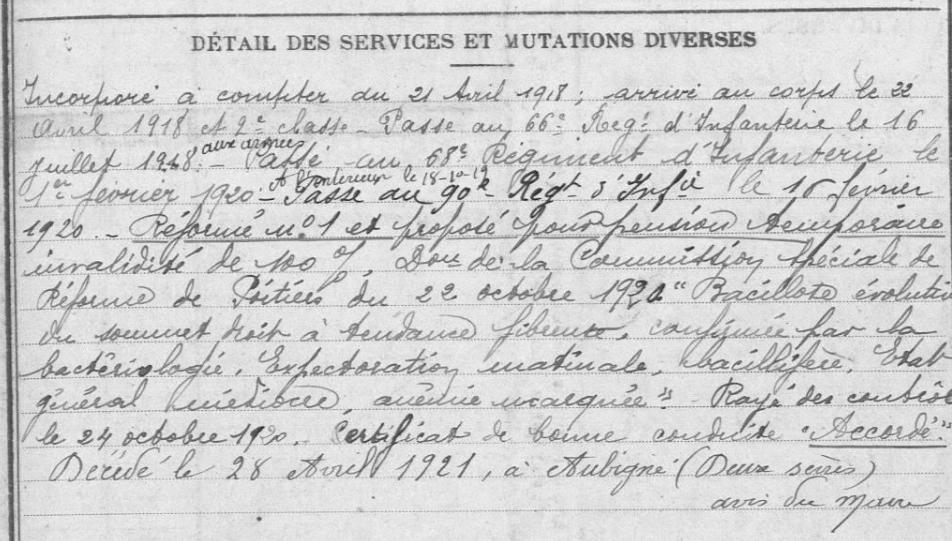 DÉTAIL DES SERVICES ET MUTATIONS DIVERSES
Incorporé à compter du 21 Avril 1918 ; arrivé au corps le 22
Avril 1918 et 2e classe - Passe au 66e Regt d'Infanterie le 16
aux armées
juillet 1918. - Passé au 68e Régiment d'Infanterie le
A l'intérieur le 18-10-19
1er février 1920 - Passe au 90e Régt d'Infie le 16 février
1920. - Réformé n° 1 et proposé pour pension temporaire
invalidité de 100 %, Don de la Commission spéciale de
Réforme de Poitiers du 22 octobre 1920 " Bacillose évoluti
du sommet droit à tendance fibreuse, confirmée par la
bactériologie. Expectoration matinale, bacillifère, Etat
général médiocre, anémie marquée" Rayé des contrôl
le 24 octobre 1920. Certificat de bonne conduite "Accordé"
Décédé le 28 Avril 1921, à Aubigné (Deux sèvres)
avis du Maire